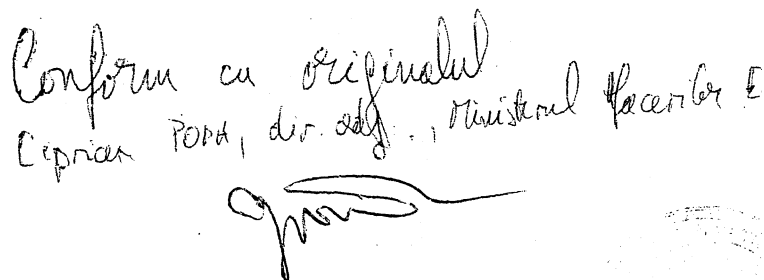 Conform cu originalul
Ciprian POPA, dir. adj., Ministerul Afacerilor E